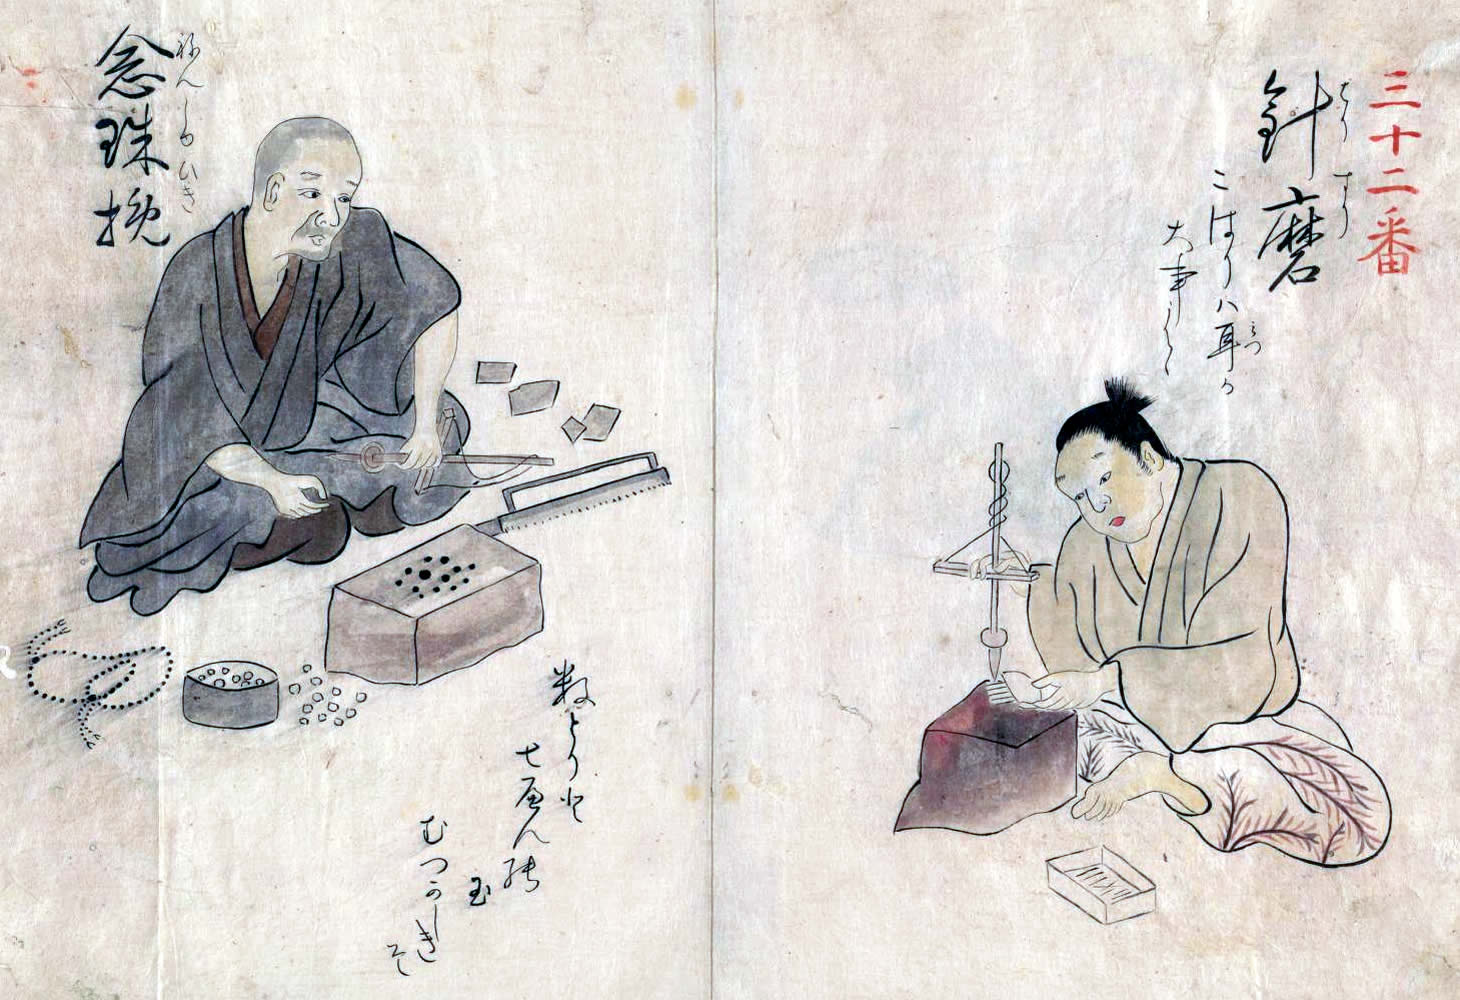 三十二番
はりすり
針磨
こはりハ耳か
みつ
大事に候
ねんしゆひき
念珠挽
数とりに
七へん
玉
むつかしき
そ